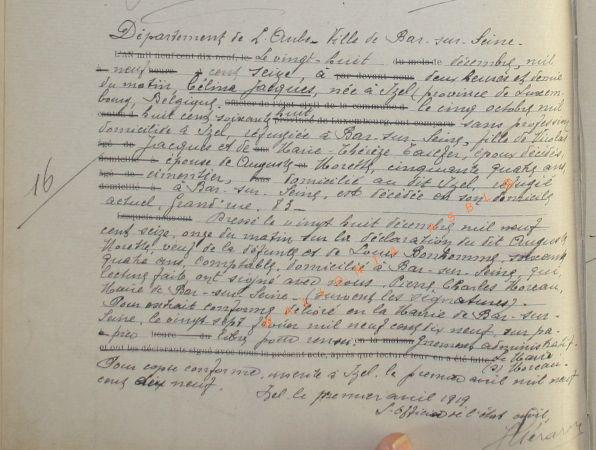 Département de l'Aube Ville de Bar-sur-Seine.
L'AN mil neuf cent dix neuf, le vingt huit du mois de décembre, mil
neuf heure cent seize, à par devant nous deux heures et demie
du matin, Célina Jacques, née à Izel, province de Luxem-
bourg, Belgique, officier de l'état civil de la commune d le cinq octobre mil
huit cent soixante huit de Luxembourg, ont comparu sans profession
domiciliée à Izel, réfugiée à Bar-sur-Seine, fille de Nicolas
âgé de Jacques et de Marie-Thérèse époux décédés,
domicilié à épouse de Auguste Noreth, cinquante quatre ans,
âgé de cimentier, domicilié au dit Izel, réfugié
domicilié à à Bar-sur-Seine, est décédée en son domicile
actuel, grand'rue, 83-
Lesquels nous ont Dressé le vingt huit décembre mil neuf
cent seize, onze du matin sur la déclaration du dit Auguste
Noreth, veuf de la défunte et de Louis Bonhomme, soixante
quatre ans, comptable, domicilié à Bar-sur-Seine, qui,
lecture faite ont signé avec nous Pierre Charles Moreau,
Maire de Bar-sur-Seine (suivent les signatures).
Pour extrait conforme délivré en la Mairie de Bar-sur-
Seine, le vingt sept mil neuf cent dix neuf, sur pa-
pier heure libre pour en la maison administratif.
et ont les déclarants signé avec nous le présent acte, après que lecture leur en a été faite. le Maire
(s) Moreau.
Pour copie conforme, inscrite à Izel, le premier avril mil neuf
cent dix neuf.
Izel, le premier avril 1919
L'officier de l'état civil,
16